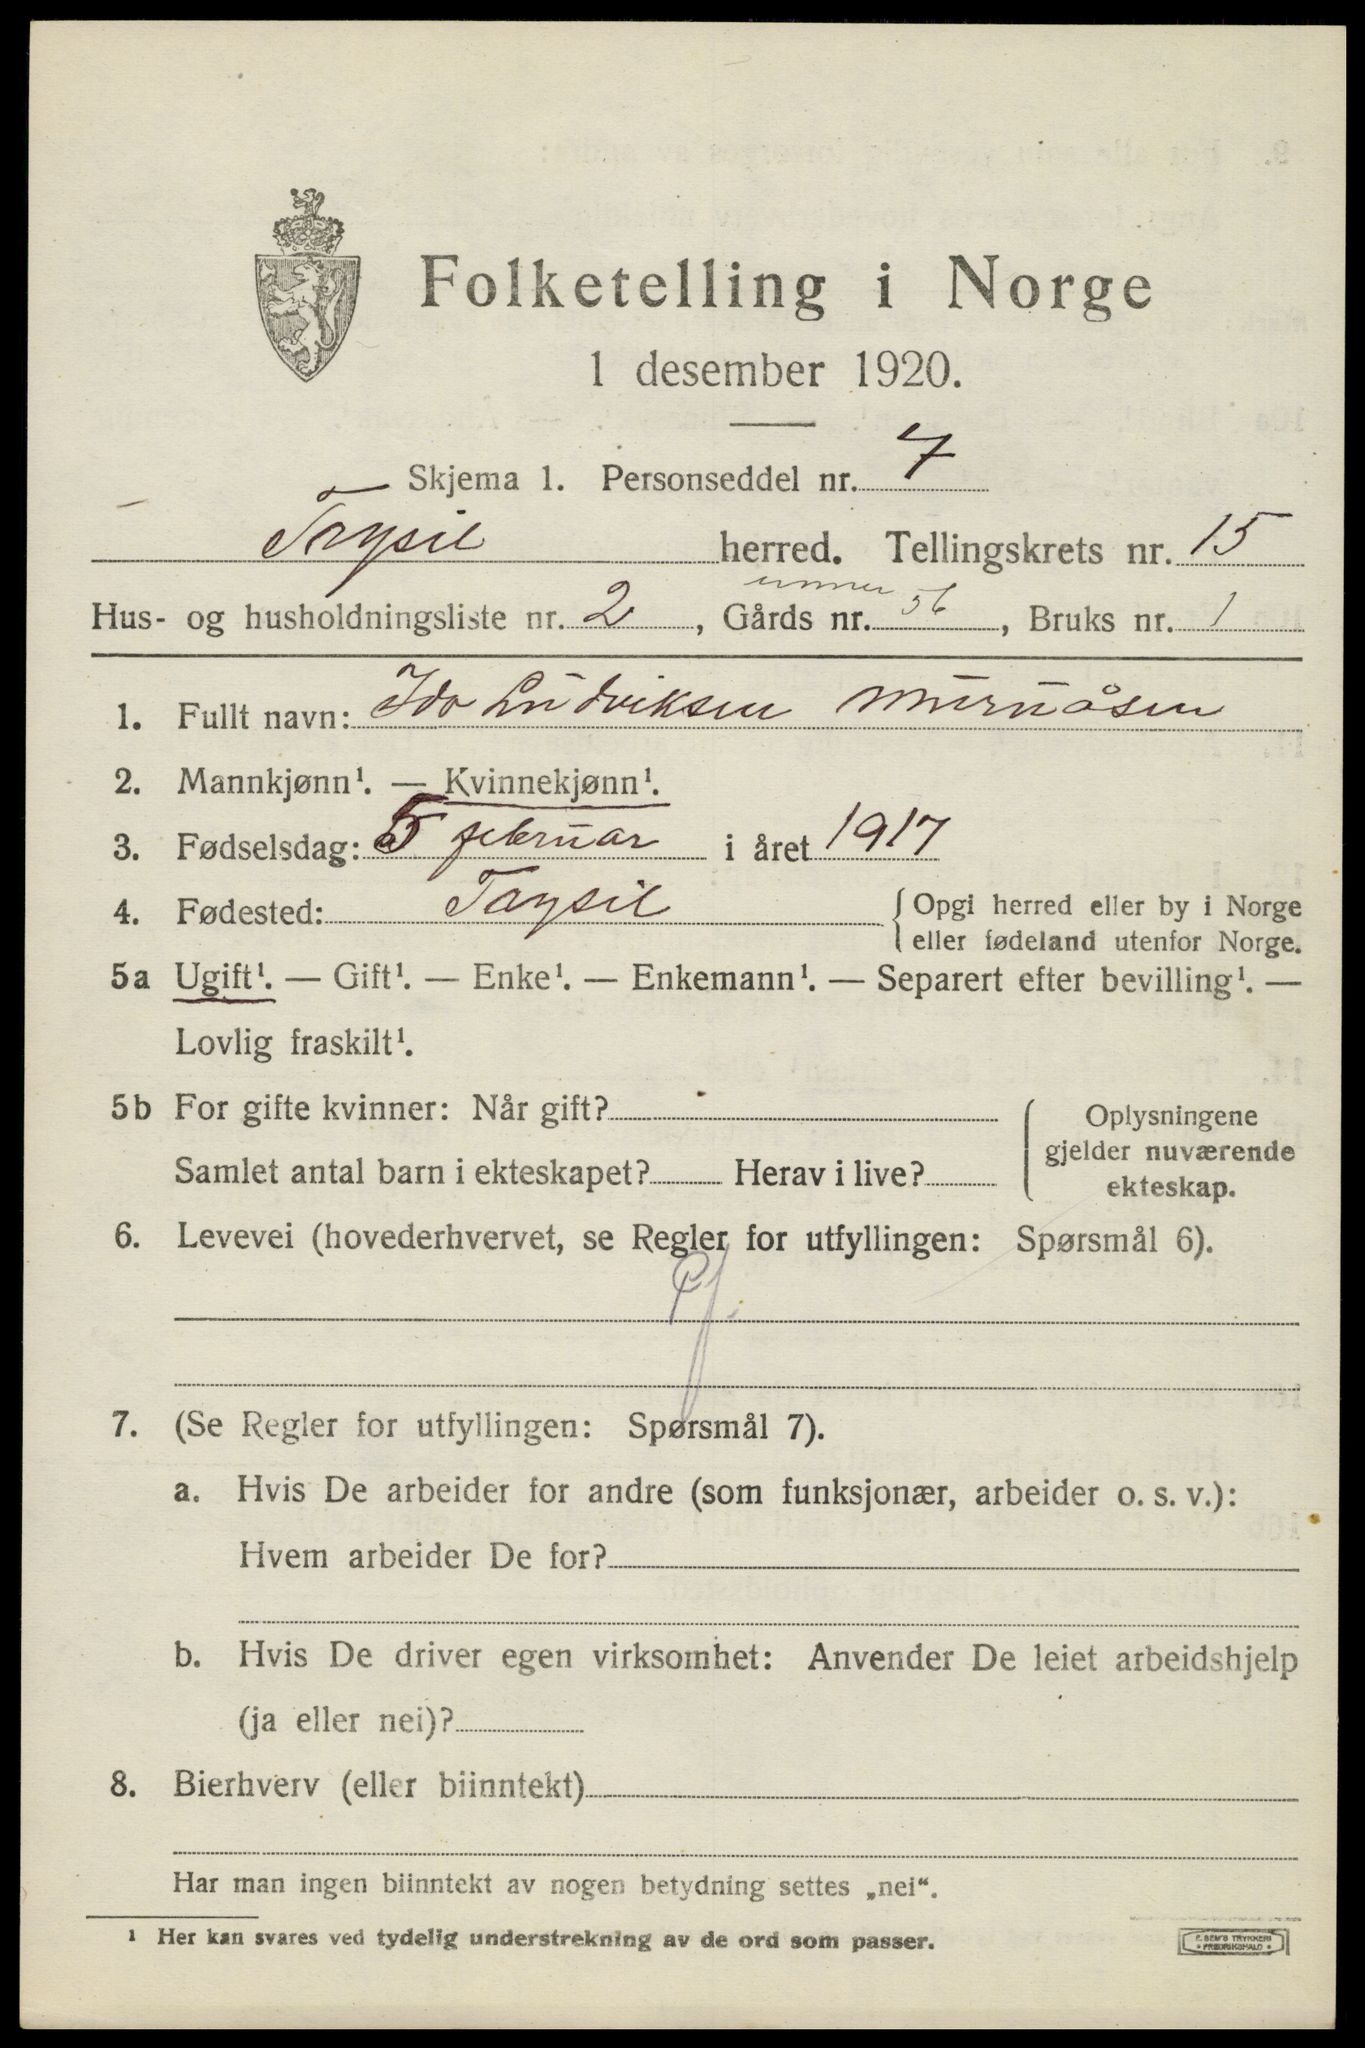 Folketelling i Norge
1 desember 1920.
Skjema 1. Personseddel nr. 7
Trysil herred. Tellingskrets nr. 15
Hus- og husholdningsliste nr. 2, Gårds nr. 56, Bruks nr. 1
1. Fullt navn: Ida Ludviksen Murmåsen
2. Mannkjønn¹. — Kvinnekjønn¹.
3. Fødselsdag: 5 februar i året 1917
4. Fødested: Trysil { Opgi herred eller by i Norge
eller fødeland utenfor Norge.
5a Ugift¹. — Gift¹. — Enke¹. — Enkemann¹. — Separert efter bevilling¹. —
Lovlig fraskilt¹.
5b For gifte kvinner: Når gift?
Samlet antal barn i ekteskapet? Herav i live?
{ Oplysningene
gjelder nuværende
ekteskap.
6. Levevei (hovederhvervet, se Regler for utfyllingen: Spørsmål 6).
7. (Se Regler for utfyllingen: Spørsmål 7).
a. Hvis De arbeider for andre (som funksjonær, arbeider o. s. v.):
Hvem arbeider De for?
b. Hvis De driver egen virksomhet: Anvender De leiet arbeidshjelp
(ja eller nei)?
8. Bierhverv (eller biinntekt)
Har man ingen biinntekt av nogen betydning settes „nei“.
¹ Her kan svares ved tydelig understrekning av de ord som passer.
E. SEM'S TRYKKERI
* FREDRIKSHALD *